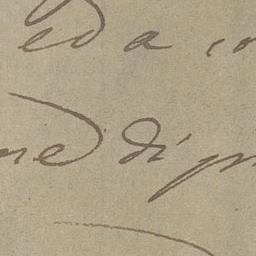 ed a co
ne di pr